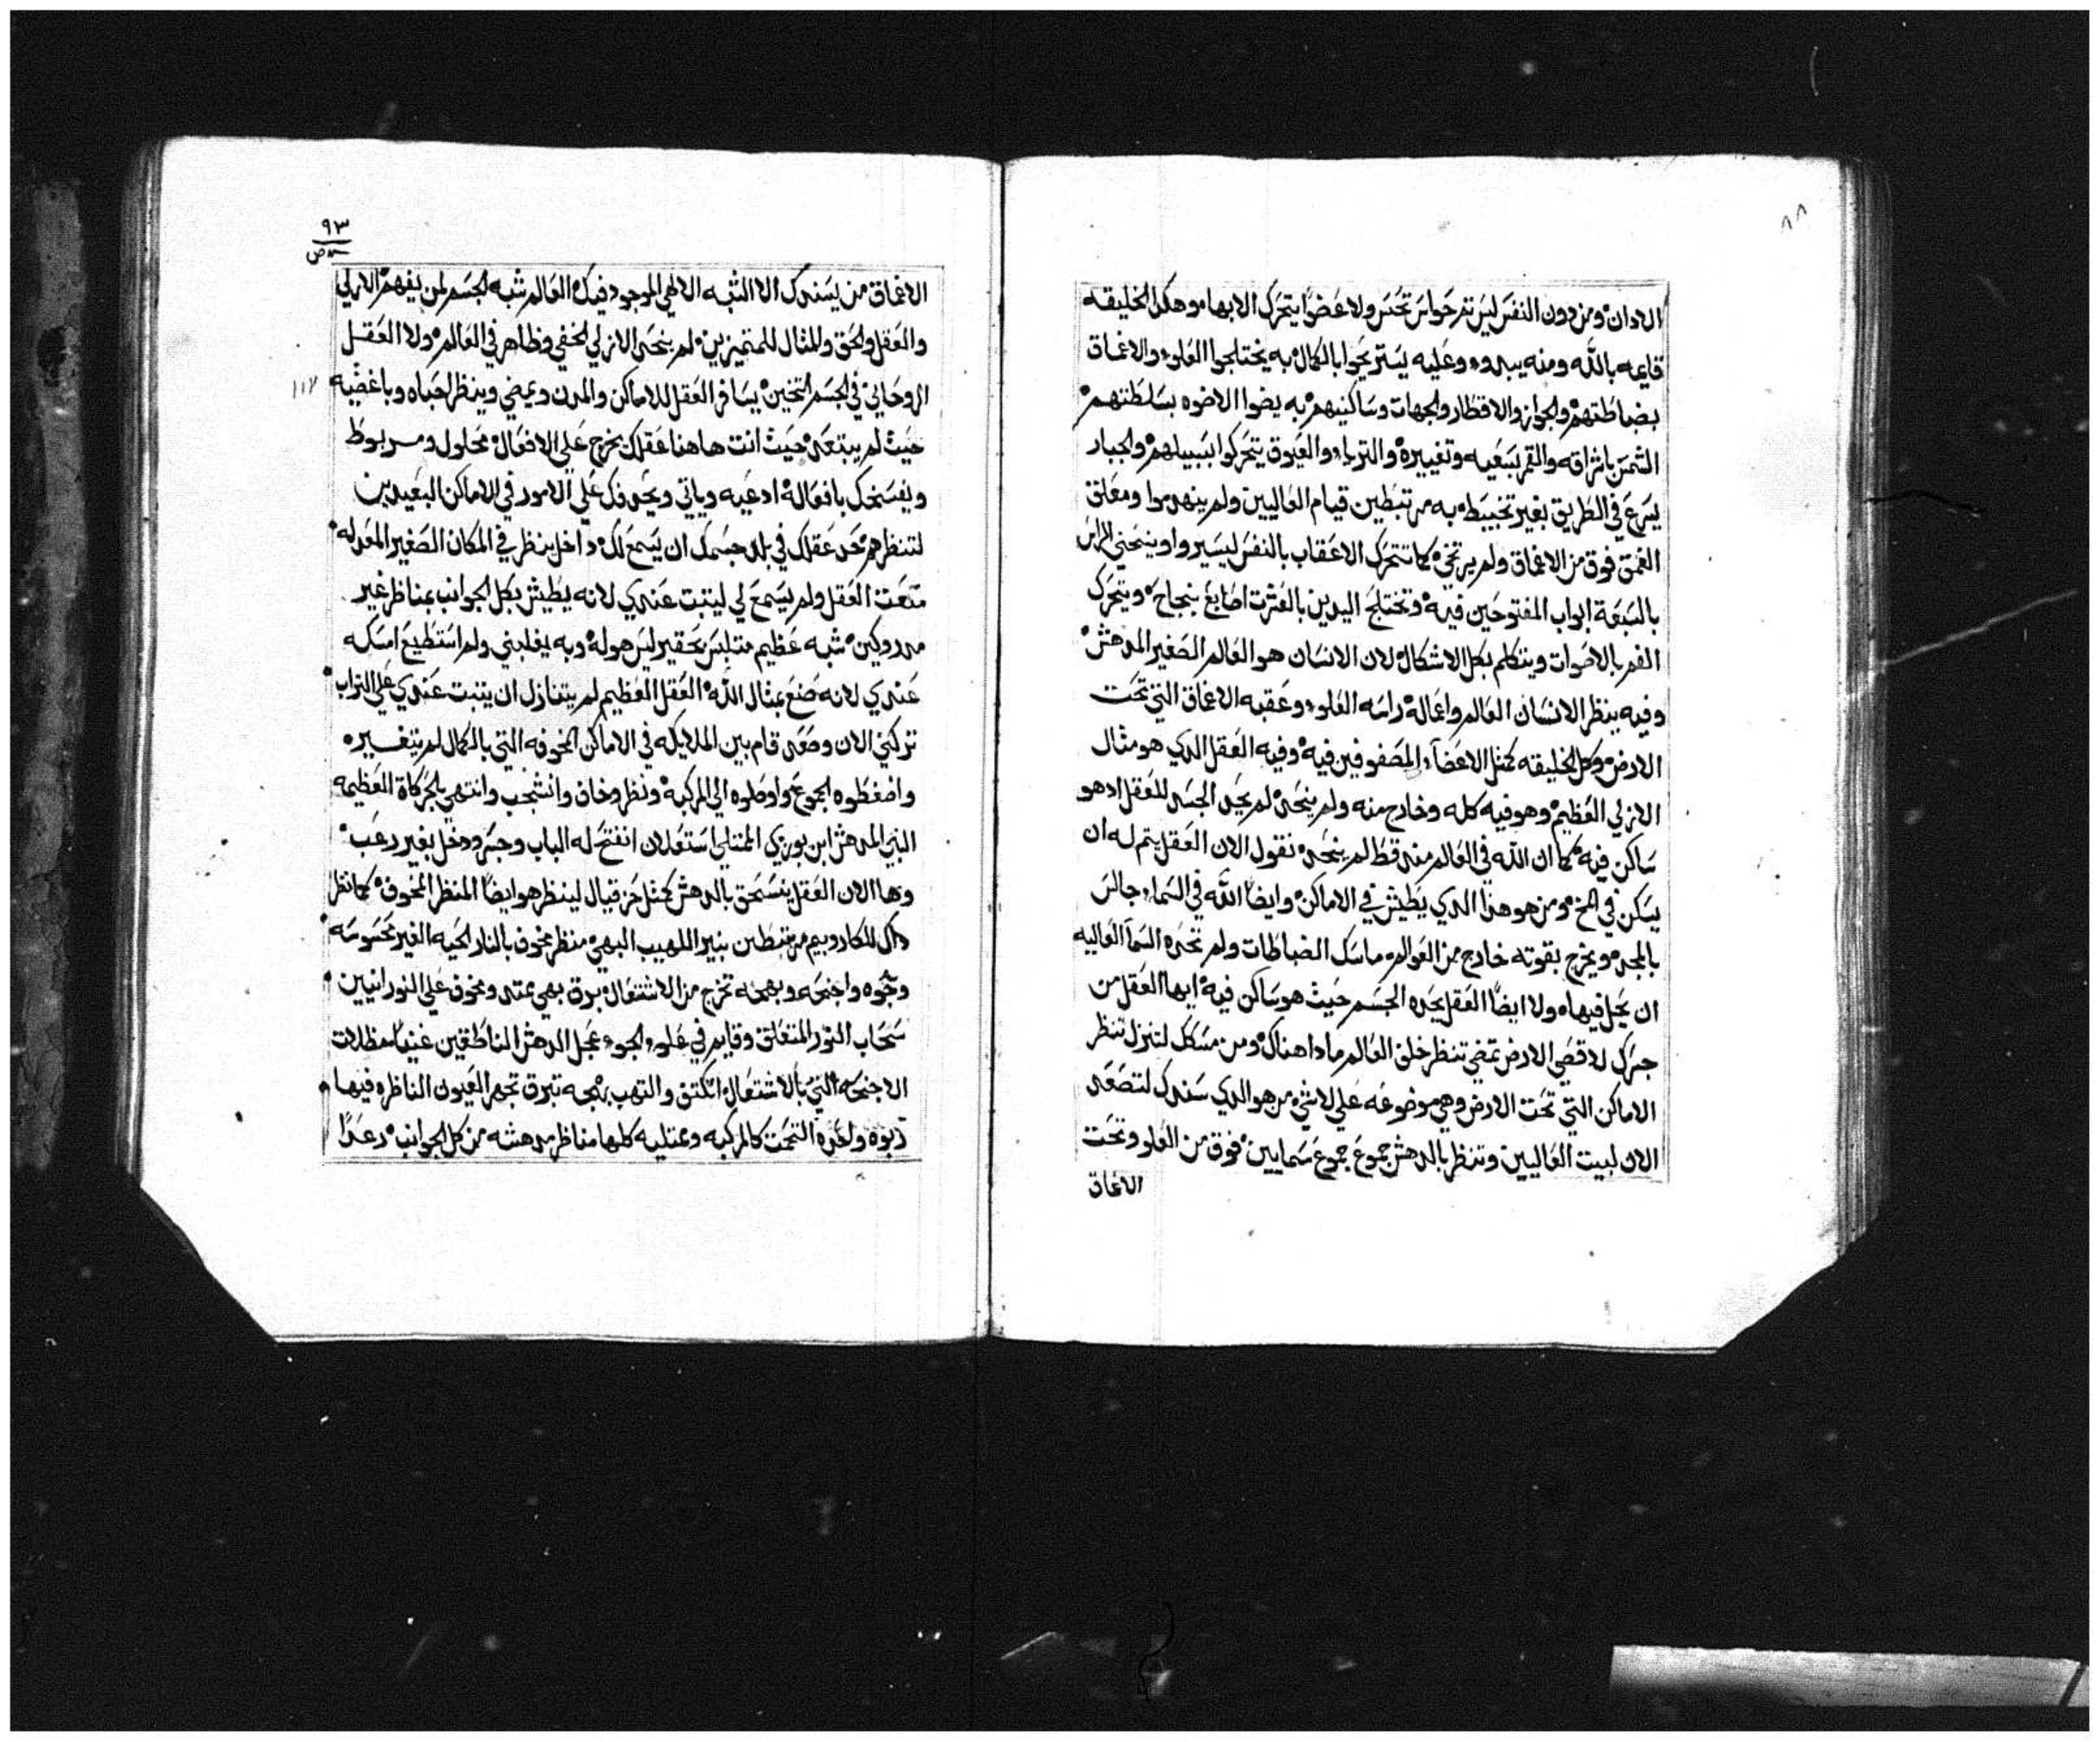 ٨٨
الادان ومن دون النفس ليس تم حواس تحس ولا عضوًا يتحرك الابها وهكدا الخليقه
قايمه بالله ومنه يبدو وعليه يستريحوا بالكمال به يختلجوا العلو والاعماق
بضباطتهم والجواز والاقطار والجهات وساكنيهم به يضوا الاضوه بسلطنتهم
الشمس باشراقه والقمر بسعيه وتغييره والتريا والعيوق يتحركوا بسبيلهم والجبار
يسرع في الطريق بغير تخبيط به مرتبطين قيام العاليين ولم ينهدموا ومعلق
العمق فوق من الاعماق ولم يرتخي كما تتحرك الاعقاب بالنفس ليسيروا وينحني الراس
بالسبعة ابواب المفتوحين فيه وتختلج اليدين بالعشرت اصابع بنجاح ويتحرك
الفم بالاصوات ويتكلم بكل الاشكال لان الانسان هو العالم الصغير المدهش
وفيه ينظر الانسان العالم واعماله راسه العلو وعقبه الاعماق التي تحت
الارض وكل الخليقه كمثل الاعضآء المصفوفين فيه وفيه العقل الدي هو مثال
الازلي العظيم وهو فيه كله وخارج منه ولم ينحد لم يحد الجسد للعقل اد هو
ساكن فيه كما ان الله في العالم منه قط لم ينحد نقول الان العقل يتم له ان
يسكن في المخ ومن هو هدا الدي يطيش في الاماكن وايضًا الله في السماء جالس
بالمجد ويخرج بقوته خارج من العوالم ماسك الضباطات ولم تحده السمآ العاليه
ان يحل فيها ولا ايضًا العقل يحده الجسم حيث هو ساكن فيه ايها العقل من
جسرك لاقصى الارض تمضي تنظر خلف العالم مادا هناك ومن مسكك لتنزل تنظر
الاماكن التي تحت الارض وهي موضوعه على لاشي من هو الدي سندك لتصعد
الان لبيت العاليين وتنظر بالدهش جموع جموع سمايين فوق من العلو وتحت
الاعماق
٩٣
الاعماق من يسندك الا الشبه الالهي الموجود فيك العالم شبه الجسم لمن يفهم الازلي
والعقل والحق والمثال للمتميزين لم ينحد الازلي الخفي وظاهر في العالم ولا العقل
الروحاني في الجسم التخين يسافر العقل للاماكن والمدن ويمضي وينظر احباه وباغضيه
حيث لم يبتعد حيث انت هاهنا عقلك يخرج على الافعال محلول ومربوط
ونفسك بافعاله ادعيه وياتي ويحدفك على الامور في الاماكن البعيدين
لتنظرهم حد عقلك في بلد جسمك ان يسمع لك داخل ينظر في المكان الصغير المعد له
متعت العقل ولم يسمع لي ليتبت عندي لانه يطيش بكل الجوانب بمناظر غير
مدروكين شبه عظيم متلبس بحقير ليس هو له وبه يغلبني ولم استطيع امسكه
عندي لانه صنع بمثال الله العقل العظيم لم يتنازل ان يتبت عندي على التراب
تركني الان وصعد قام بين الملايكه في الاماكن المخوفه التي بالكمال لم تتغير
واضغطوه الجموع واوصلوه الى المركبه ونظر وخاف وانشجب وانتهي بالحركاة العظيمه
النبي المدهش ابن بوزي الممتلي استعلان انفتح له الباب وجسر ودخل بغير رعب
وها الان العقل ينسحق بالدهش كمثل حزقيال لينظر هو ايضًا المنظر المخوف كما نظر
داك للكاروبيم مرتبطين بنير اللهيب البهي منظر مخوف بالنار الحيه الغير محسوسه
وجوه واجنحه وبهجه تخرج من الاشتعال برق بهي يمتد ومخوف على النورانيين
سحاب النور المتعلق وقايم في علو الجو عجل الدهش الناطقين عنيفًا مظللات
الاجنحه التي بالاشتعال اتكتف والتهب بهجه تبرق تجهر العيون الناظره فيها
ربوه واحده التحمت كالمركبه وممتليه كلها مناظر مدهشه من كل الجوانب رعدًا